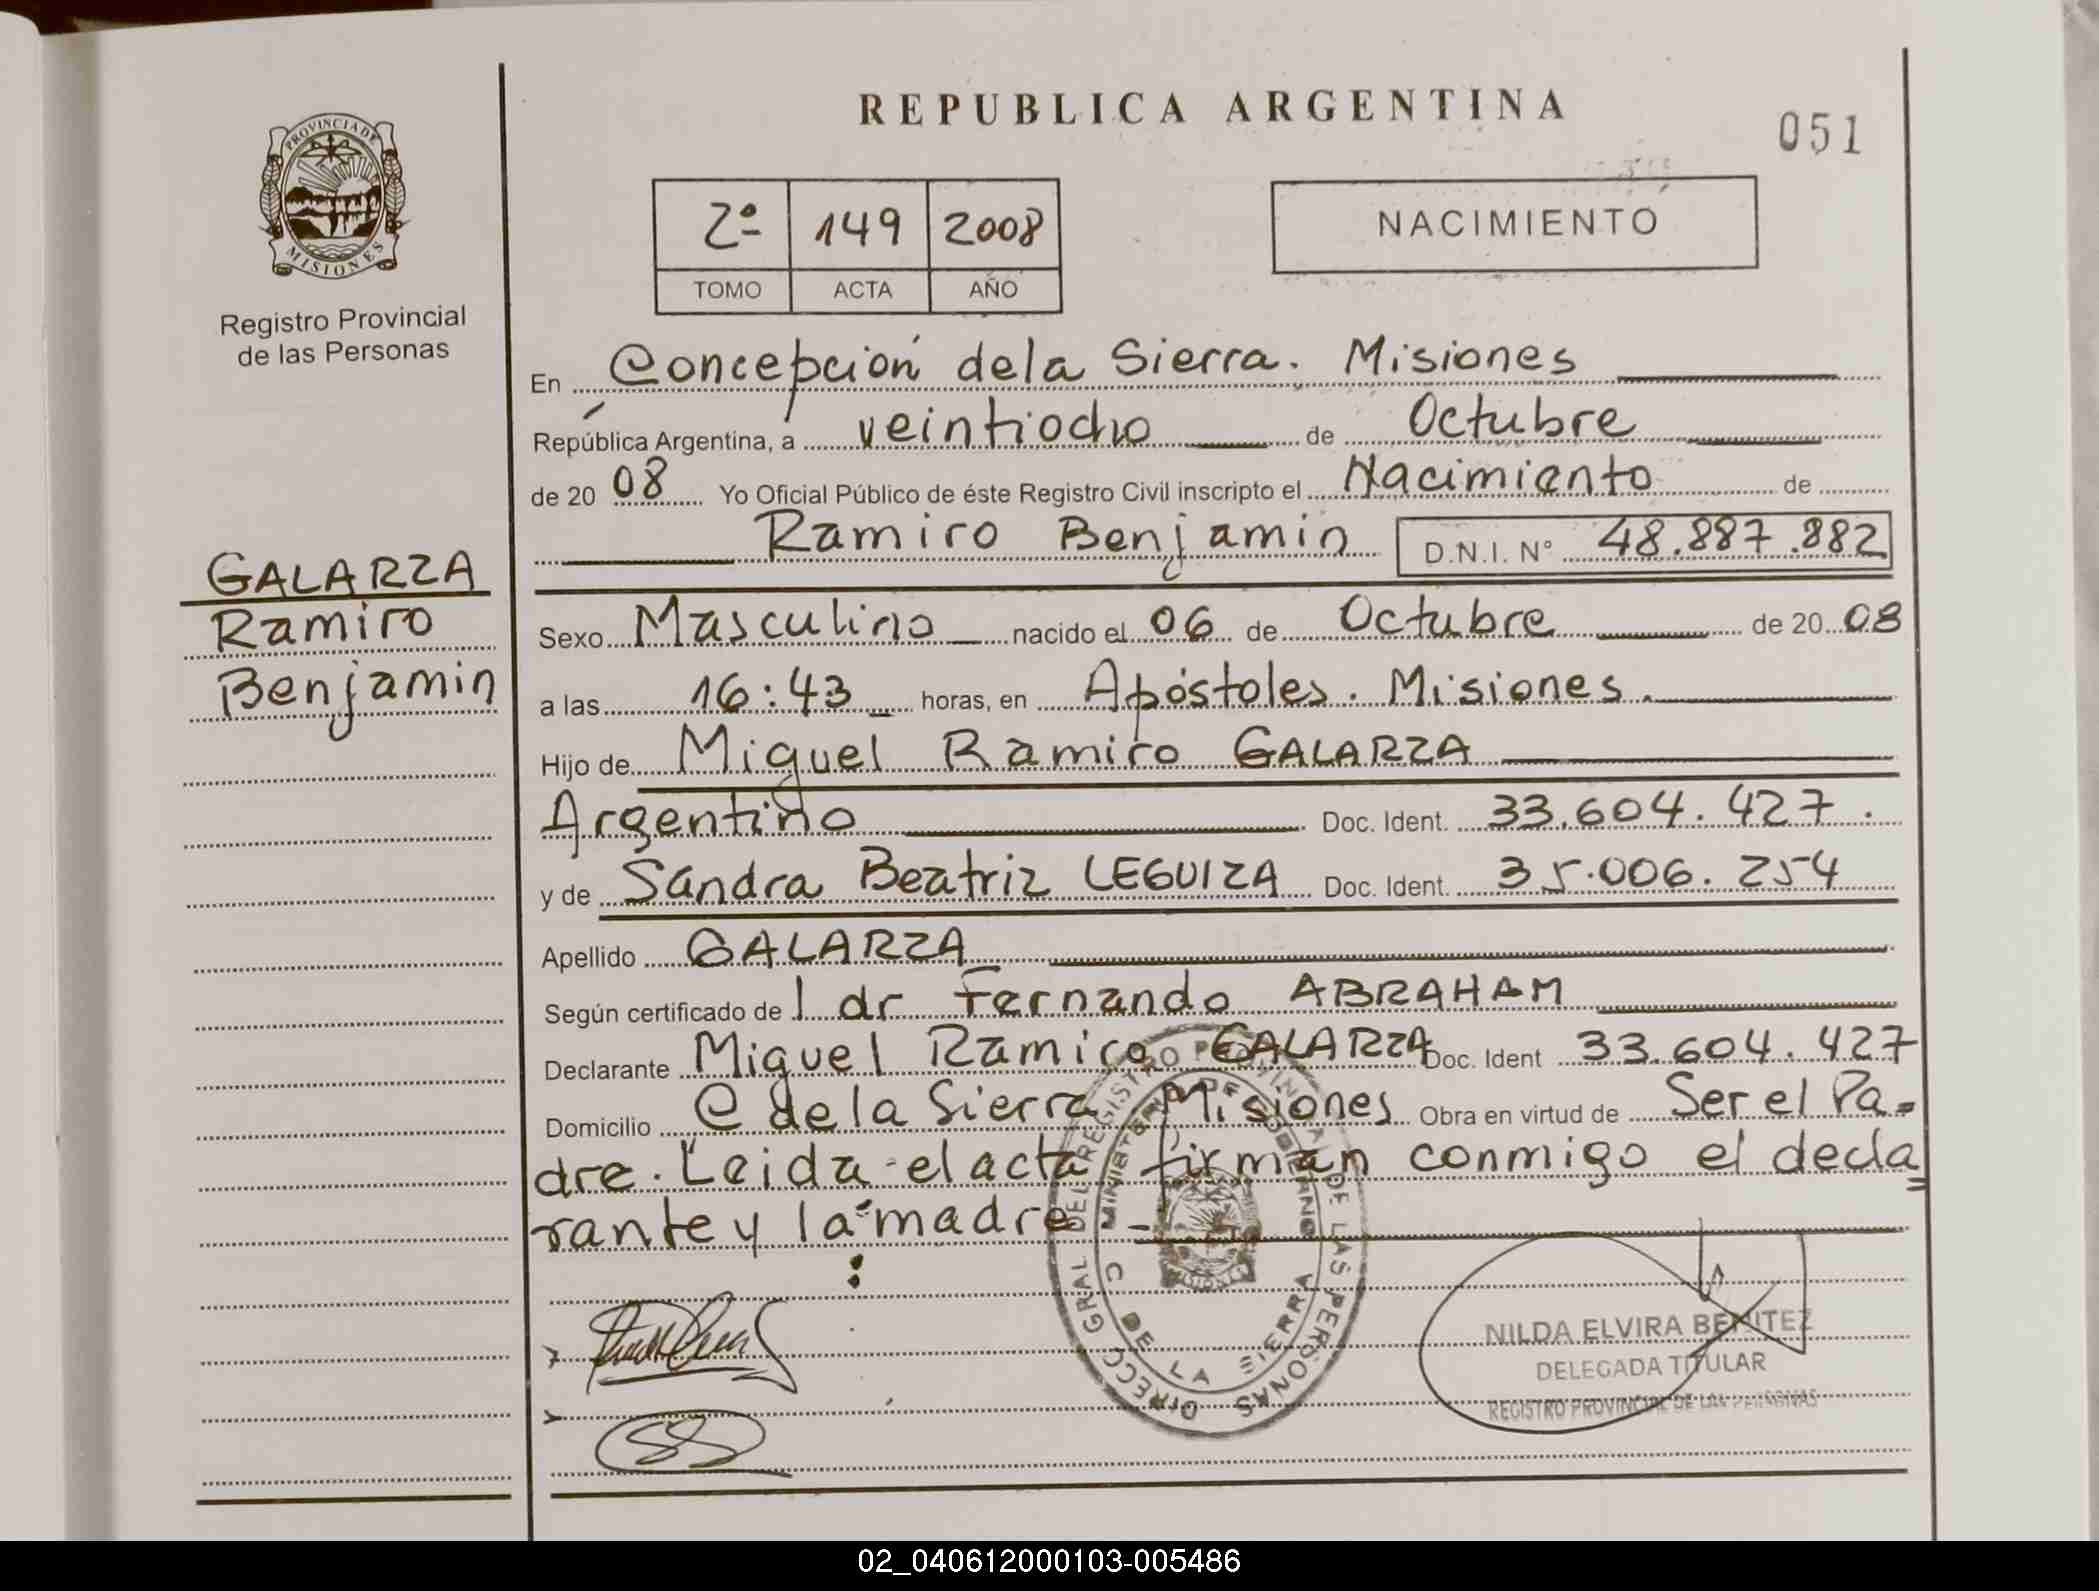 REPUBLICA ARGENTINA
051
PROVINCIA DE
MISIONES
Registro Provincial
de las Personas
2º 149 2008
TOMO ACTA AÑO
NACIMIENTO
En Concepción dela Sierra. Misiones
República Argentina, a veintiocho de Octubre
de 20 08 Yo Oficial Público de éste Registro Civil inscripto el Nacimiento de
Ramiro Benjamín D.N.I. Nº 48.887.882
GALARZA
Ramiro
Benjamin
Sexo Masculino nacido el 06 de Octubre de 20 08
a las 16:43 horas, en Apóstoles. Misiones.
Hijo de Miguel Ramiro GALARZA
Argentino Doc. Ident. 33.604.427.
y de Sandra Beatriz LEGUIZA Doc. Ident. 35.006.254
Apellido GALARZA
Según certificado de l dr Fernando ABRAHAM
Declarante Miguel Ramiro GALARZA Doc. Ident 33.604.427
Domicilio C de la Sierra Misiones Obra en virtud de Ser el Pa=
dre. Leida el acta firman conmigo el decla
rante y la madre
DIRECC GRAL DEL REGISTRO PROVINCIAL DE LAS PERSONAS
MINISTERIO DE GOBIERNO
C DE LA SIERRA
MISIONES
NILDA ELVIRA BENITEZ
DELEGADA TITULAR
REGISTRO PROVINCIAL DE LAS PERSONAS
02_040612000103-005486